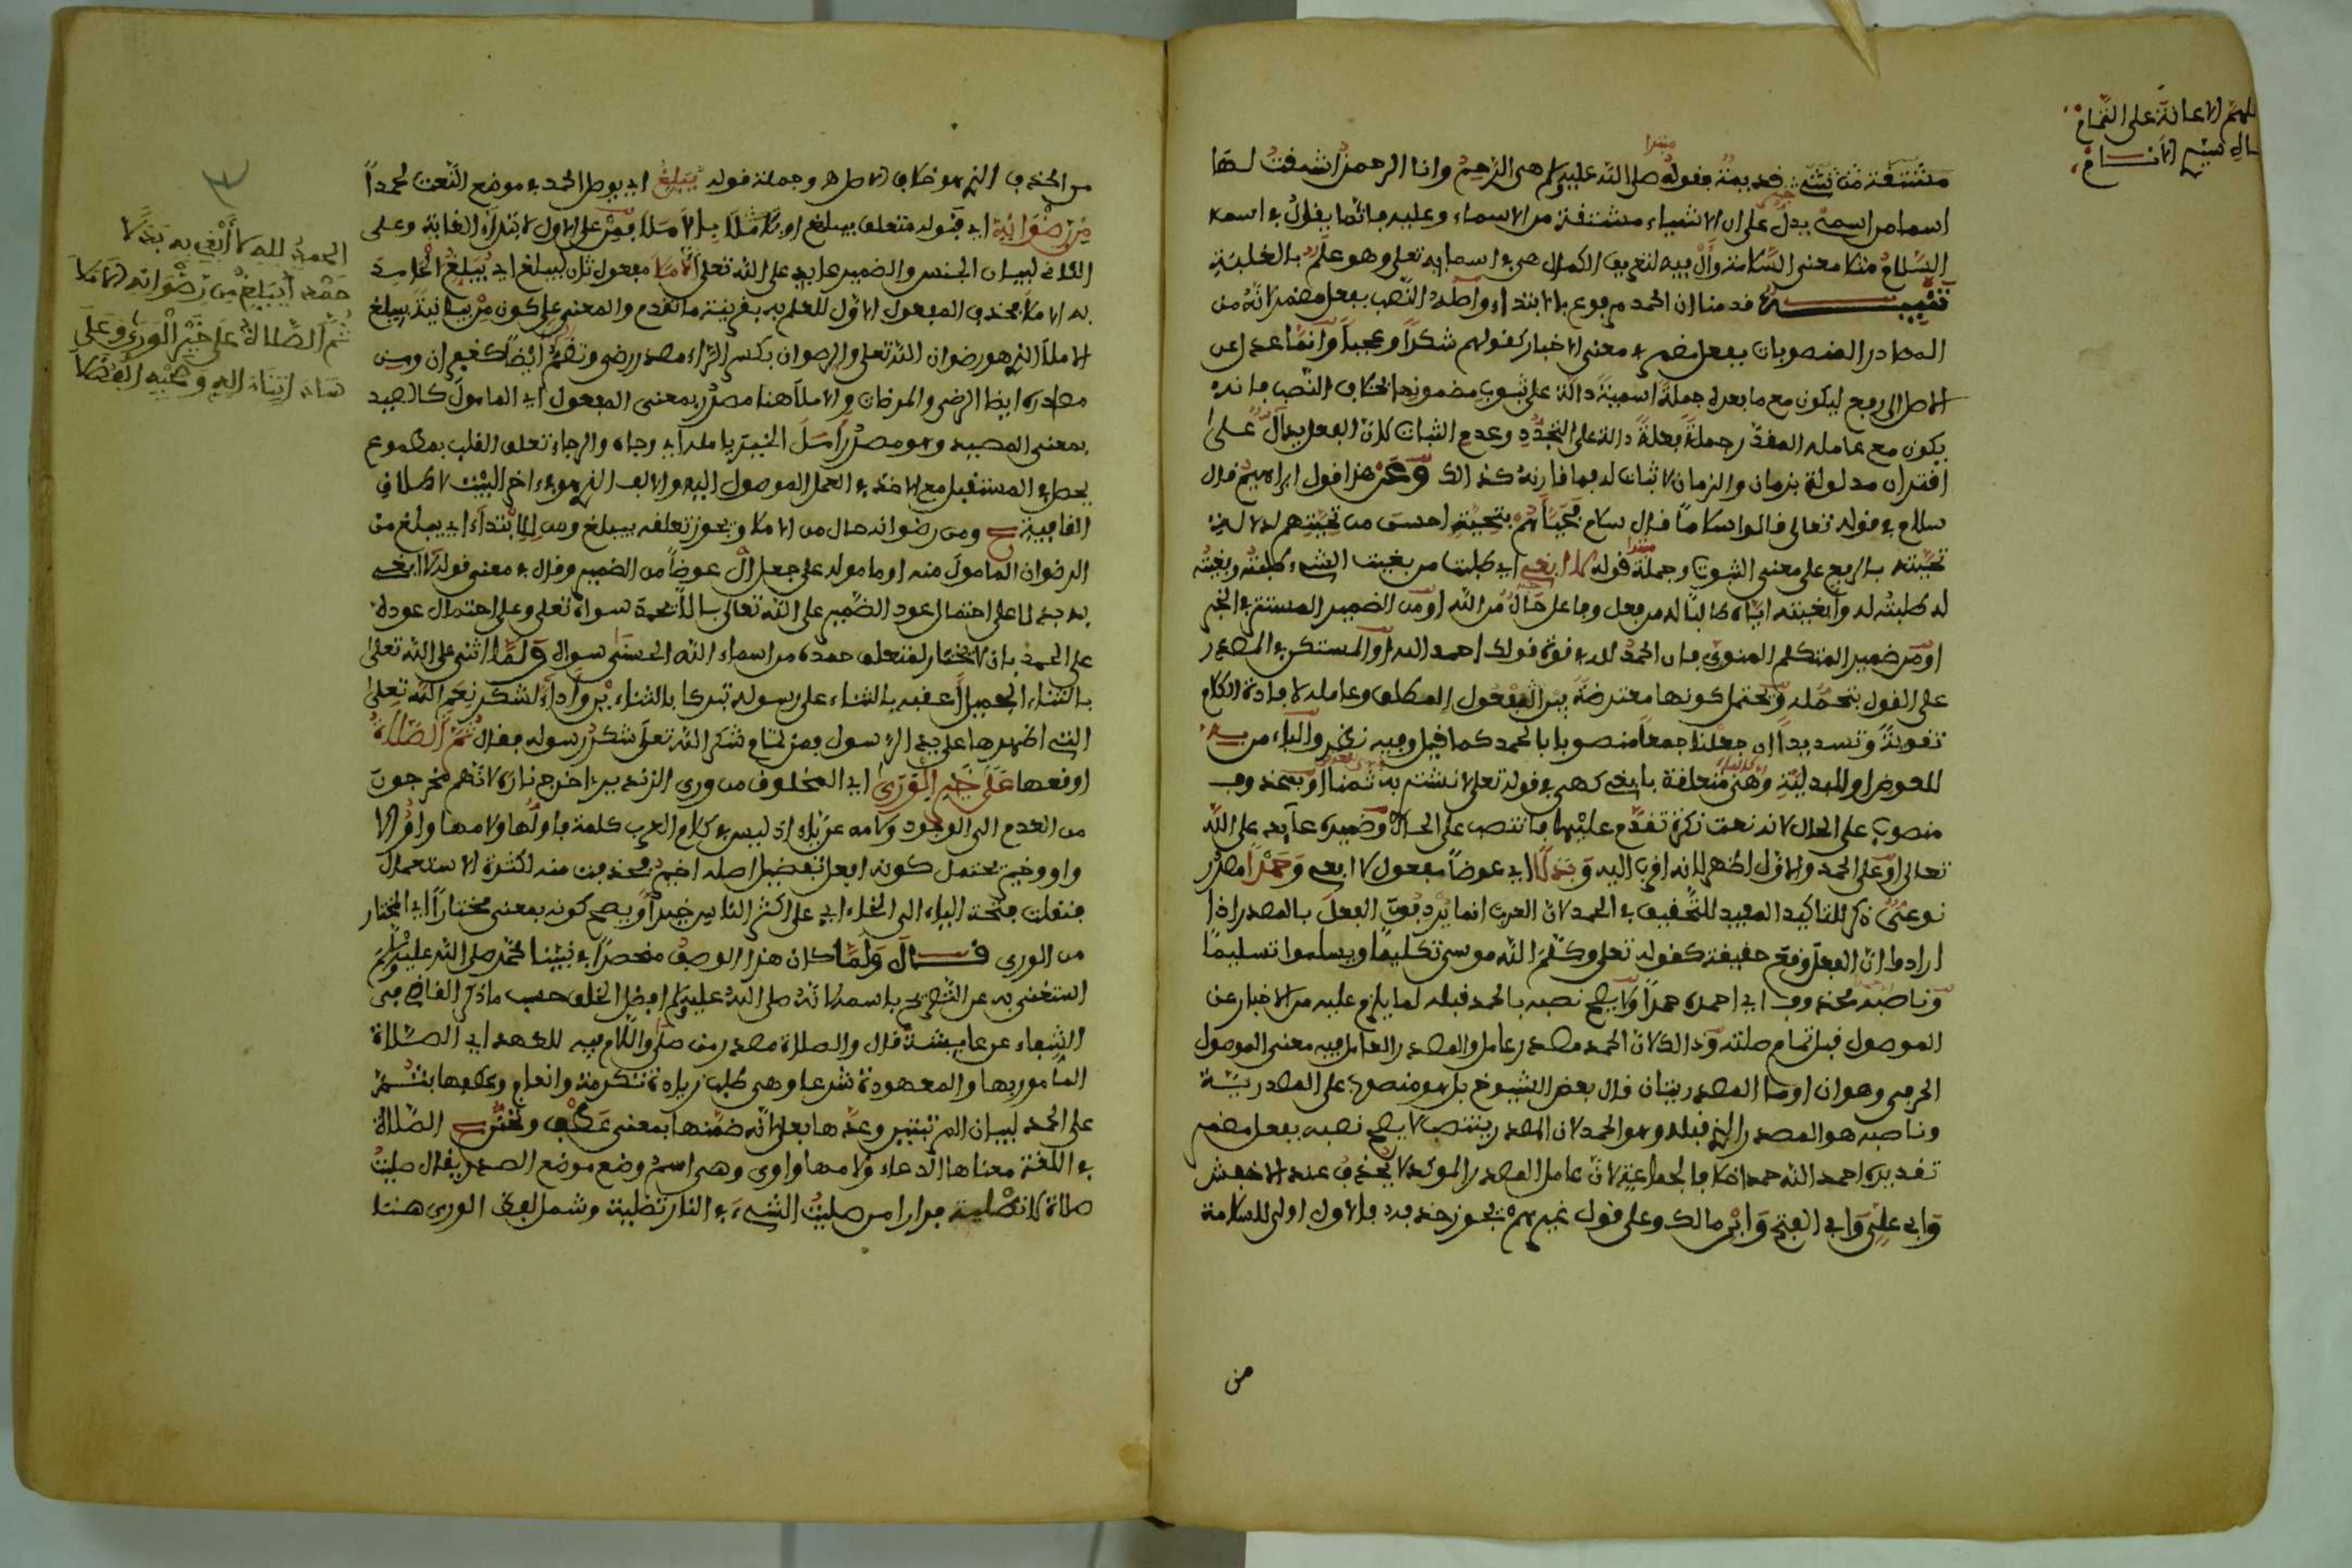 اللهم الاعانة على التمام
مشتقة من شيء فديمة وفوله صلى الله عليه وسلم هى الرحم وانا الرحمن اشتففت لها
اسما من اسمى يدل على ان الاشياء مشتفة من الاسماء وعليه
السلام مثلا معنى السلامة وأل فيه لتعريف الكمال هى في اسمايه تعلى وهو علم بالغلبة
تنبيه فدمنا ان الحمد مرفوع بالابتداء واصله النصب بفعل مضمر لانه من
المصادر المنصوبات بفعل مضمر في معنى الاخبار كفولهم شكرا وعجبا وانما عدل عن
الاصل الى الرفع ليكون مع ما بعده جملة اسمية دالة على ثبوت مضمونها بخلاف النصب فانه
يكون مع عامله المفدر جملة فعلية دالة على التجدد وعدم الثبات لان الفعل دال على
افتران مدلوله بزمان والزمان لا ثبات له فما فارنه كذالك ومن هذا فول ابراهيم فال
سلام في فوله تعالى فالوا سلاما فال سلام فحياهم بتحية احسن من تحيتهم له لان
تحيته بالرفع على معنى الثبوت وجملة فوله لا ابغى اي طلبت من بغيت الشيء طلبته وبغيته
له طلبته له وابغيته اياه طالبا له من فعل وفاعل حال من الله او من الضمير المستتر في الخبر
او من ضمير المتكلم المنوي فان الحمد لله في فوة فولك احمد الله او المستكن في المصدر
على الفول بتحمله ويحتمل كونها معترضة بين المفعول المطلق وعامله لافادة الكلام
تفوية وتسديدا ان جعلنا جمعا منصوبا بالحمد كما فيل وفيه نظر والباء من به
للعوض او للبدلية وهي متعلفة بابغى كهى في فوله تعلى لا نشترى به ثمنا او بمحذوف
منصوب على الحال لانه نعت نكرة تفدم عليها فانتصب على الحال وضميره عايد على الله
تعالى او على الحمد والاول اظهر لانه افرب اليه وبدلا اي عوضا مفعول لا ابغى وحمدا مصدر
نوعى ذكر للتاكيد المفيد للتحفيف في الحمد لان العرب انما يردفون الفعل بالمصدر اذا
ارادوا ان الفعل وفع حفيفة كفوله تعلى وكلم الله موسى تكليما ويسلموا تسليما
وناصبه محذوف اي احمده حمدا ولا يصح نصبه بالحمد فبله لما يلزم عليه من الاخبار عن
الموصول فبل تمام صلته وذالك لان الحمد مصدر عامل والمصدر العامل فيه معنى الموصول
الحرفى وهو ان او ما المصدريتان فال بعض الشيوخ بل هو منصوب على المصدرية
وناصبه هو المصدر الذي فبله وهو الحمد لان المصدر ينتصب لا يصح نصبه بفعل مضمر
تفديره احمد الله حمدا خلافا لجماعة لان عامل المصدر الموكد لا يحذف عند الاخفش
وابى على وابى الفتح وابن مالك وعلى فول غيرهم يجوز حذفه فالاول اولى للسلامة
من
من الحذف الذي هو خلاف الاصل وجملة فوله يبلغ اي يوصل الحمد في موضع النعت لحمدا
من رضوانه اي فبوله متعلق بيبلغ او بالاملا فمن على الاول لابتداء الغاية وعلى
الثاني لبيان الجنس والضمير عايد على الله تعلى الاملا مفعول ثان ليبلغ اي يبلغ الحامد
به الاملا فحذف المفعول الاول للعلم به بفرينة ما تفدم والمعنى على كون من بيانية يبلغ
الاملا الذي هو رضوان الله تعلى والرضوان بكسر الراء مصدر رضى وتضم ايضا كغفران ومن
مصادره ايضا الرضى والمرضات والاملا هنا مصدر بمعنى المفعول اي المامول كالصيد
بمعنى المصيد وهو مصدر امل الخير ياملہ اي رجاه والرجاء تعلق الفلب بمطموع
يحصل في المستفبل مع الاخذ في العمل الموصول اليه والالف الذي هو في اخر البيت لاطلاق
الفافية ح ومن رضوانه حال من الاملا ويجوز تعلفه بيبلغ ومن للابتداء اي يبلغ من
الرضوان المامول منه او مامولہ على جعل ال عوضا من الضمير وفال في معنى فوله لا ابغى
به بدلا على احتمال عود الضمير على الله تعالى سواه تعلى وعلى احتمال عوده
على الحمد بان لا يختار لمتعلق حمده من اسماء الله الحسنى سواه ولما اثنى على الله تعلى
بالثناء الجميل اعفبه بالثناء على رسوله تبركا بالثناء واداء لشكر نعم الله تعلى
التي اظهرها على يد الرسول فمن تمام شكر الله تعلى شكر رسوله ففال ثم الصلاة
اوفعها على خير الورى اي المخلوق من ورى الزند يرى اخرج ناره لانهم مخرجون
من العدم الى الوجود ولامه عن ياء اذ ليس في كلام العرب كلمة فاولها ولامها واو الا
واو وخير يحتمل كونه افعل تفضيل اصله اخير فحذفت منه لكثرة الاستعمال
فنفلت فتحة الياء الى الخاء اي على اكثر الناس خيرا ويصح كونه بمعنى مختارا اي المختار
من الورى فال ولما كان هذا الوصف منحصرا في نبينا محمد صلى الله عليه وسلم
استغنى به عن التصريح باسمه لانه صلى الله عليه وسلم افضل الخلق حسب ما ذكر الفاضى في
الشفاء عن عايشة فال والصلاة مصدر من صلى واللام فيه للعهد اي الصلاة
المامور بها والمعهودة شرعا وهى طلب زيادة تكرمة وانعام وعطفها بثم
على الحمد لبيان المرتبتين وعدها بعلى لانه ضمنها بمعنى عطف وتحنن ح الصلاة
في اللغة معناها الدعاء ولامها واوى وهى اسم وضع موضع المصدر يفال صليت
صلاة لا تصلية فرارا من صليت الشيء في النار تصلية وشمل لفظ الورى هنا
الحمد لله لا ابغى به بدلا
حمدا يبلغ من رضوانه الاملا
ثم الصلاة على خير الورى وعلى
ساداتنا اله وصحبه الفضلا